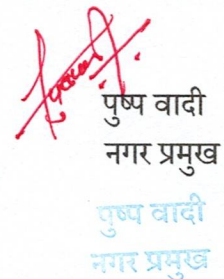 पुष्प वादी
नगर प्रमुख
पुष्प वादी
नगर प्रमुख